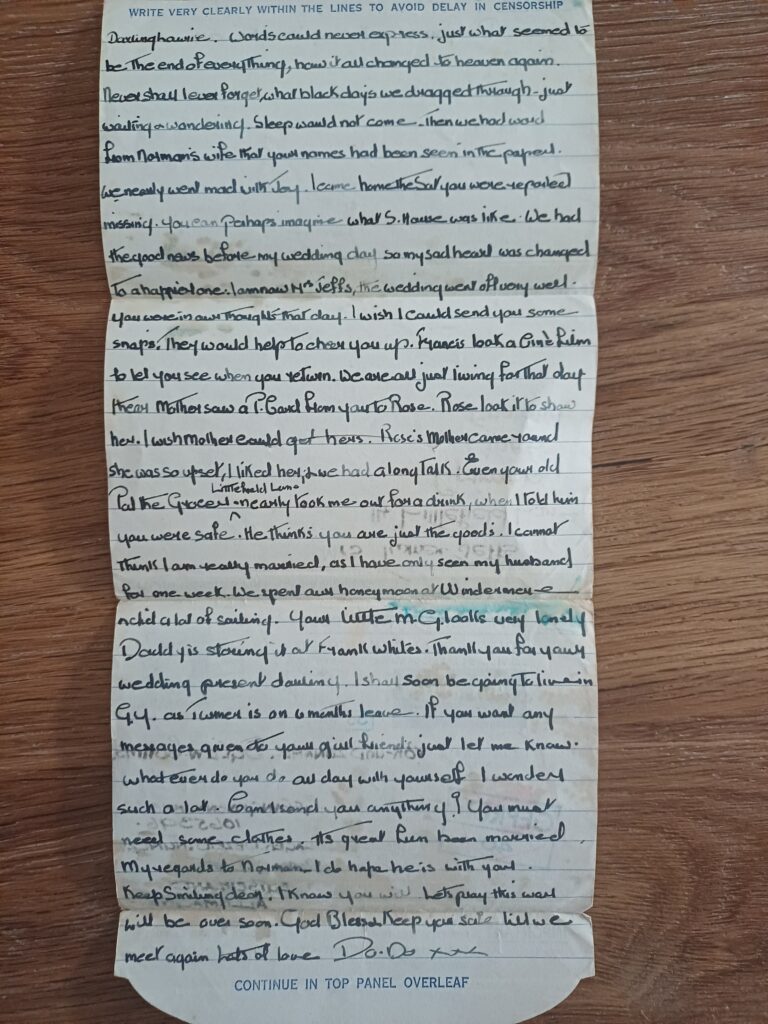 WRITE VERY CLEARLY WITHIN THE LINES TO AVOID DELAY IN CENSORSHIP
Darling Lawrie. Words could never express, just what seemed to
be the end of everything, how it all changed to heaven again.
Never shall I ever forget, what black days we dragged through - just
waiting & wandering. Sleep would not come. Then we had word
from Norman's wife that your names had been seen in the papers.
We nearly went mad with Joy. I came home the Sat you were reported
missing. You can perhaps imagine what S. House was like. We had
the good news before my wedding day so my sad heart was changed
to a happier one. I am now Mrs Jeffs, the wedding went off very well.
You were in our thoughts that day. I wish I could send you some
snaps. They would help to cheer you up. Francis took a Cine film
to let you see when you return. We are all just living for that day
I hear Mother saw a P. Card from you to Rose. Rose took it to show
her. I wish Mother could get hers. Rose's Mother came round
she was so upset, I liked her, & we had a long talk. Even your old
Pal the Grocer nearly took me out for a drink, when I told him
you were safe. He thinks you are just the goods. I cannot
think I am really married, as I have only seen my husband
for one week. We spent our honeymoon at Windermere
 a lot of sailing. Your little M.G. looks very lonely
Daddy is storing it at Frank Whites. Thank you for your
wedding present darling. I shall soon be going to live in
G.Y. as Turner is on 6 months leave. If you want any
messages given to your girl friends just let me know.
whatever do you do all day with yourself I wonder
such a lot. Can I send you anything? You must
need some clothes. Its great fun been married
My regards to Norman, I do hope he is with you.
Keep Smiling dear. I know you will Lets pray this war
will be over soon. God Bless & Keep you safe till we
meet again Lots of love Do-Do xxx
CONTINUE IN TOP PANEL OVERLEAF